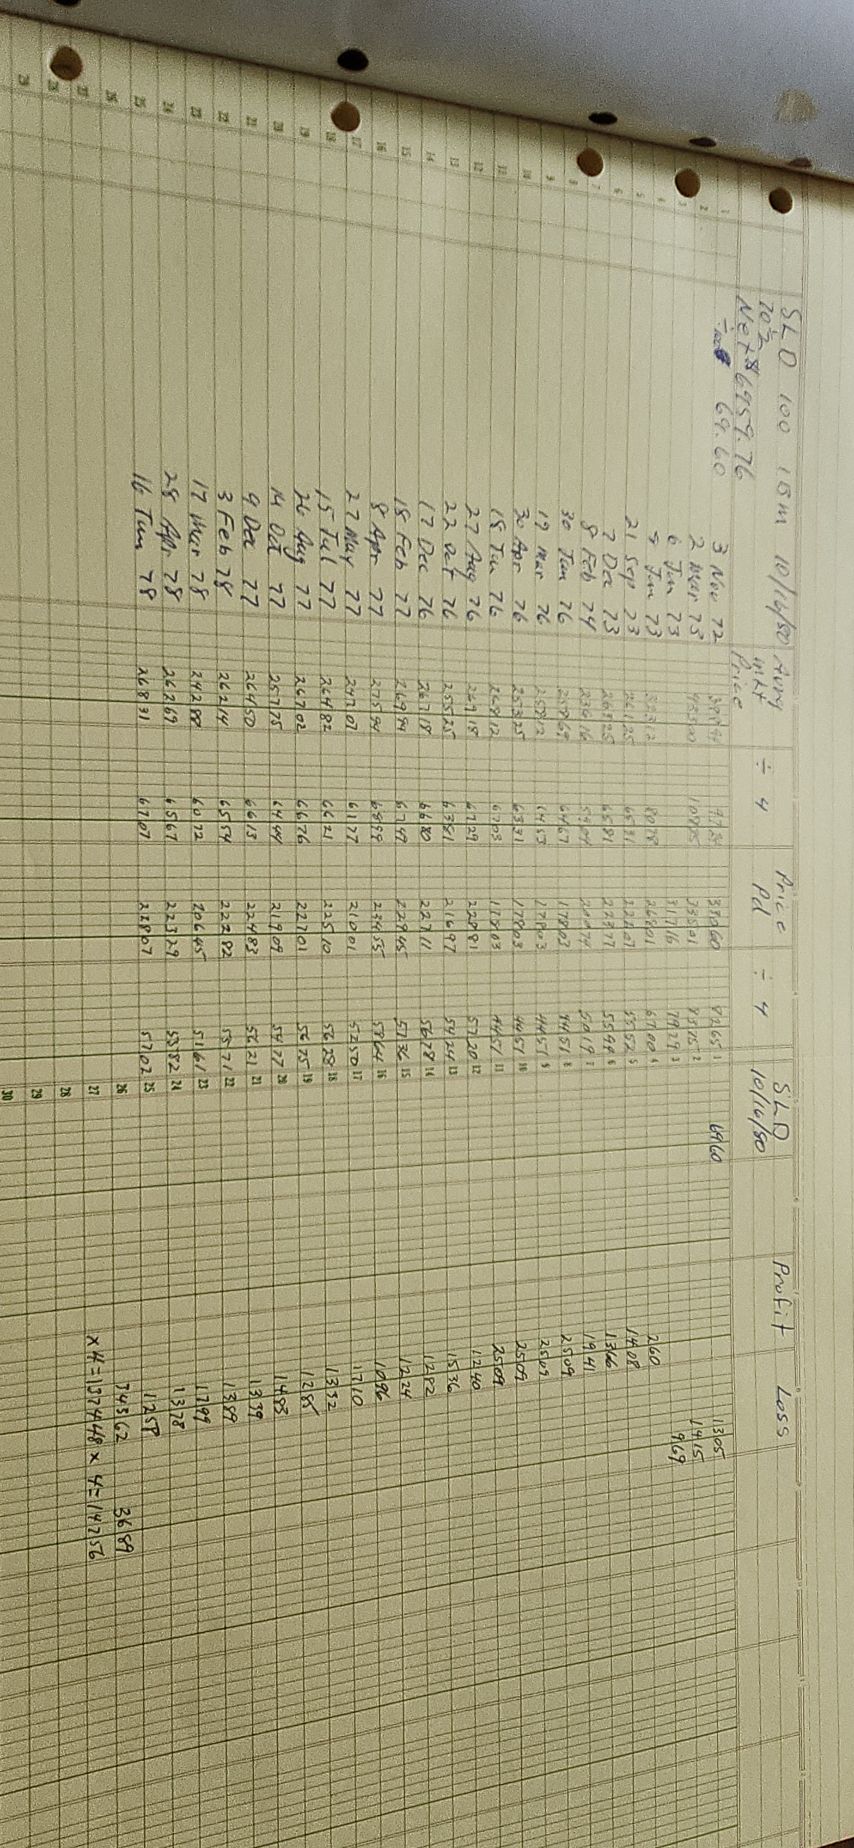 SLD 100 IBM 10/16/80
70 1/2
Net $6959.76
÷ 100 69.60
Avrg mkt Price ÷ 4 Price Pd ÷ 4 SLD 10/16/80 Profit Loss
3 Nov 72 33060 82.65 1 69 60 13 05
2 Mar 73 43500 108 75 33501 83 75 2 14 15
6 Jun 73 31716 79 29 3 9 69
Jun 73 26801 67 00 4 2 60
21 Sep 73 261 25 65 31 222 07 55 52 5 14 08
7 Dec 73 263 25 65 81 223 77 55 94 6 13 66
8 Feb 74 236 16 59 04 200 74 50 19 7 19 41
30 Jan 76 258 69 64 67 178 03 44 51 8 25 09
19 Mar 76 258 12 64 53 178 03 44 51 9 25 09
30 Apr 76 253 25 63 31 178 03 44 51 10 25 09
18 Jun 76 268 12 67 03 178 03 44 51 11 25 09
27 Aug 76 269 18 67 29 228 81 57 20 12 12 40
22 Oct 76 255 25 63 81 216 97 54 24 13 15 36
17 Dec 76 267 18 66 80 227 11 56 78 14 12 82
18 Feb 77 269 94 67 49 229 45 57 36 15 12 24
8 Apr 77 275 94 68 99 234 55 58 64 16 10 96
27 May 77 247 07 61 77 210 01 52 50 17 17 10
15 Jul 77 264 82 66 21 225 10 56 28 18 13 32
26 Aug 77 267 02 66 76 227 01 56 75 19 12 85
14 Oct 77 257 75 64 44 219 09 54 77 20 14 83
9 Dec 77 264 50 66 13 224 83 56 21 21 13 39
3 Feb 78 262 14 65 54 222 82 55 71 22 13 89
17 Mar 78 242 88 60 72 206 45 51 61 23 17 99
28 Apr 78 262 69 65 67 223 29 53 82 24 13 78
16 Jun 78 268 31 67 07 228 07 57 02 25 12 58
26 343 62 36 89
27 x 4 = 1374 48 x 4 = 147 56
28
29
30